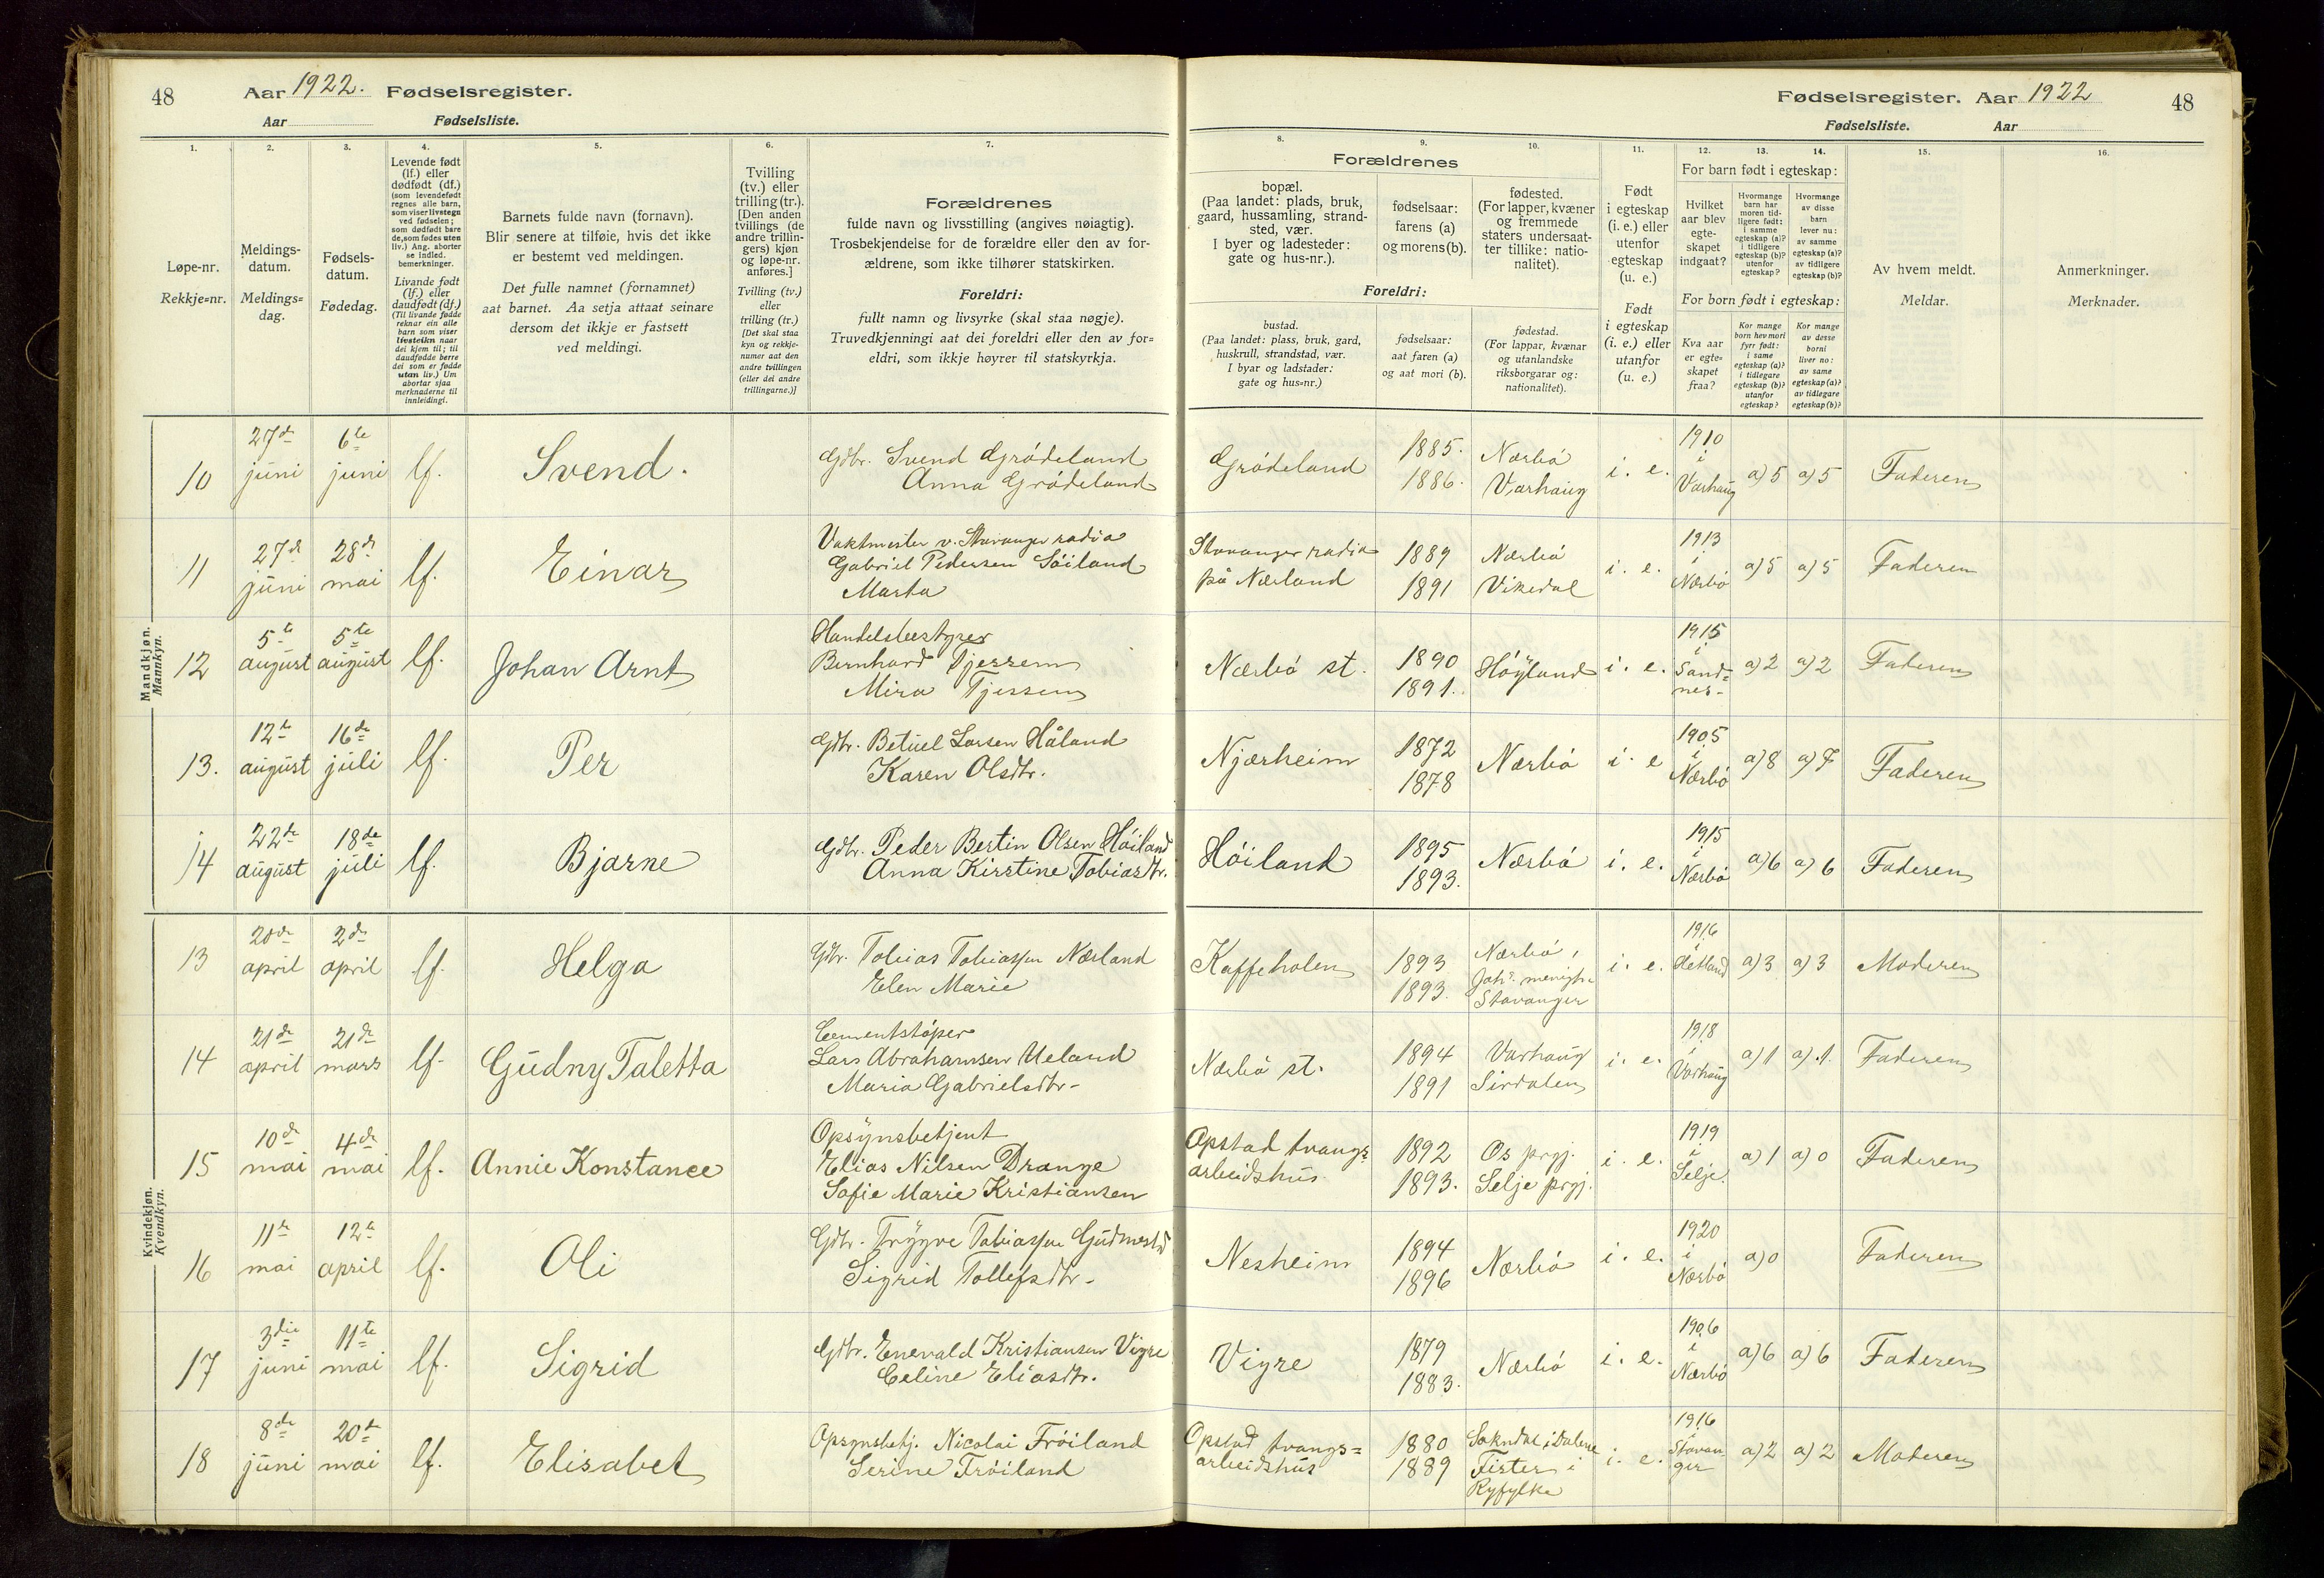 48
Aar 1922. Fødselsregister.
Aar Fødselsliste.
1. 2. 3. 4. 5. 6. 7.
Løpe-nr.
Rekkje=nr.
Meldings-
datum.
Meldings=
dag.
Fødsels-
datum.
Fødedag.
Levende født
(lf.) eller
dødfødt (df.)
(som levendefødt
regnes alle barn,
som viser livstegn
ved fødselen;
som dødfødt bare
de, som fødes uten
liv.) Ang. aborter
se indled.
bemerkninger.
Livande født
(lf.) eller
daudfødt (df.)
(Til livande fødde
reknar ein alle
barn som viser
livsteikn naar
dei kjem til; til
daudfødde berre
dei som er fødde
utan liv.) Um
abortar sjaa
merknaderne til
innleidingi.
Barnets fulde navn (fornavn).
Blir senere at tilføie, hvis det ikke
er bestemt ved meldingen.
Det fulle namnet (fornamnet)
aat barnet. Aa setja attaat seinare
dersom det ikkje er fastsett
ved meldingi.
Tvilling
(tv.) eller
trilling (tr.).
[Den anden
tvillings (de
andre trillin-
gers) kjøn
og løpe-nr.
anføres.]
Tvilling (tv.)
eller
trilling (tr.)
[Det skal staa
kyn og rekkje-
numer aat den
andre tvillingen
(eller dei andre
trillingarne.)]
Forældrenes
fulde navn og livsstilling (angives nøiagtig).
Trosbekjendelse for de forældre eller den av for-
ældrene, som ikke tilhører statskirken.
Foreldri:
fullt namn og livsyrke (skal staa nøgje).
Truvedkjenningi aat dei foreldri eller den av for=
eldri, som ikkje høyrer til statskyrkja.
Mandkjøn.
Mannkyn.
10 27de juni 6te juni lf. Svend. Gdbr. Svend Grödeland
Anna Grödeland
11 27de juni 28de mai lf. Einar Vaktmester v. Stavanger radio
Gabriel Pedersen Söiland
Marta
12 5te august 5te august lf. Johan Arnt Handelsbestyrer
Bernhard Tjessem
Mira Tjessem
13. 12te august 16de juli lf. Per Gdbr. Betuel Larsen Håland
Karen Olsdtr.
14 22de august 18de juli lf. Bjarne Gdbr. Peder Bertin Olsen Höiland
Anna Kirstine Tobiasdtr.
Kvindekjøn.
Kvendkyn.
13 20de april 2den april lf. Helga Gdbr. Tobias Tobiassen Nærland
Elen Marie
14 21de april 21de mars lf. Gudny Taletta Cementstöper
Lars Abrahamsen Ueland
Maria Gabrielsdtr.
15 10de mai 4de mai lf. Annie Konstance Opsynsbetjent
Elias Nilsen Drange
Sofie Marie Kristiansen
16 11te mai 12te april lf. Oli Gdbr. Trygve Tobiassen Gudmestad
Sigrid Tollefsdtr.
17 3die juni 11te mai lf. Sigrid Gdbr. Enevald Kristiansen Vigre
Celine Eliasdtr.
18 8de juni 20de mai lf. Elisabet Opsynsbetj. Nicolai Fröiland
Serine Fröiland
Fødselsregister. Aar 1922 48
Fødselsliste. Aar
8. 9. 10. 11. 12. 13. 14. 15. 16.
Forældrenes
bopæl.
(Paa landet: plads, bruk,
gaard, hussamling, strand-
sted, vær.
I byer og ladesteder:
gate og hus-nr.).
fødselsaar:
farens (a)
og morens (b).
fødested.
(For lapper, kvæner
og fremmede
staters undersaat-
ter tillike: natio-
nalitet).
Foreldri:
bustad.
(Paa landet: plass, bruk, gard,
huskrull, strandstad, vær.
I byar og ladstader:
gate og hus=nr.)
fødselsaar:
aat faren (a)
og aat mori (b).
fødestad.
(For lappar, kvænar
og utanlandske
riksborgarar og:
nationalitet).
Født
i egteskap
(i. e.) eller
utenfor
egteskap
(u. e.)
Født
i egteskap
(i. e.) eller
utanfor
(u. e.)
For barn født i egteskap:
Hvilket
aar blev
egte-
skapet
indgaat?
Hvormange
barn har
moren tid-
ligere født:
i samme
egteskap (a)?
i tidligere
egteskap (b)?
utenfor
egteskap?
Hvormange
av disse
barn
lever nu:
av samme
egteskap (a)?
av tidligere
egteskap (b)?
For born født i egteskap:
Kva aar
er egte=
skapet
fraa?
Kor mange
born hev mori
fyrr født:
i same
egteskap (a)?
i tidlegare
egteskap (b)?
utanfor
egteskap?
Kor mange
av desse
borni
liver no:
av same
egteskap (a)?
av tidlegare
egteskap (b)?
Av hvem meldt.
Meldar.
Anmerkninger.
Merknader.
Grödeland 1885. 1886. Nærbö Varhaug i. e. 1910 i Varhaug a) 5 a) 5 Faderen
Stavanger radio på Nærland 1889 1891 Nærbö Vikedal i. e. 1913 i Nærbö a) 5 a) 5 Faderen
Nærbö st. 1890 1891. Höyland i. e. 1915 i Sand=nes- a) 2 a) 2 Faderen
Njærheim 1872 1878 Nærbö i. e 1905 i Nærbö a) 8 a) 7 Faderen
Höiland 1895 1893. Nærbö i. e. 1915 i Nærbö a) 6 a) 6 Faderen
Kaffeholen 1893 1893. Nærbö, Joh's. menigh. Stavanger i. e. 1916 i Hetland a) 3 a) 3 Moderen
Nærbö st. 1894 1891 Varhaug Sirdalen i. e. 1918 i Varhaug a) 1 a) 1. Faderen
Opstad tvangs=arbeidshus 1892 1893. Os prgj. Selje prgj. i. e. 1919 i Selje. a) 1 a) 0 Faderen
Nesheim 1894 1896 Nærbö i. e. 1920 i Nærbö a) 0 Faderen
Vigre 1879 1883. Nærbö i. e. 1906 i Nærbö a) 6 a) 6 Faderen
Opstad tvangs=arbeidshus 1880 1889 Sokndal i Dalene Fister i Ryfylke i. e. 1916 i Stavanger a) 2 a) 2 Moderen